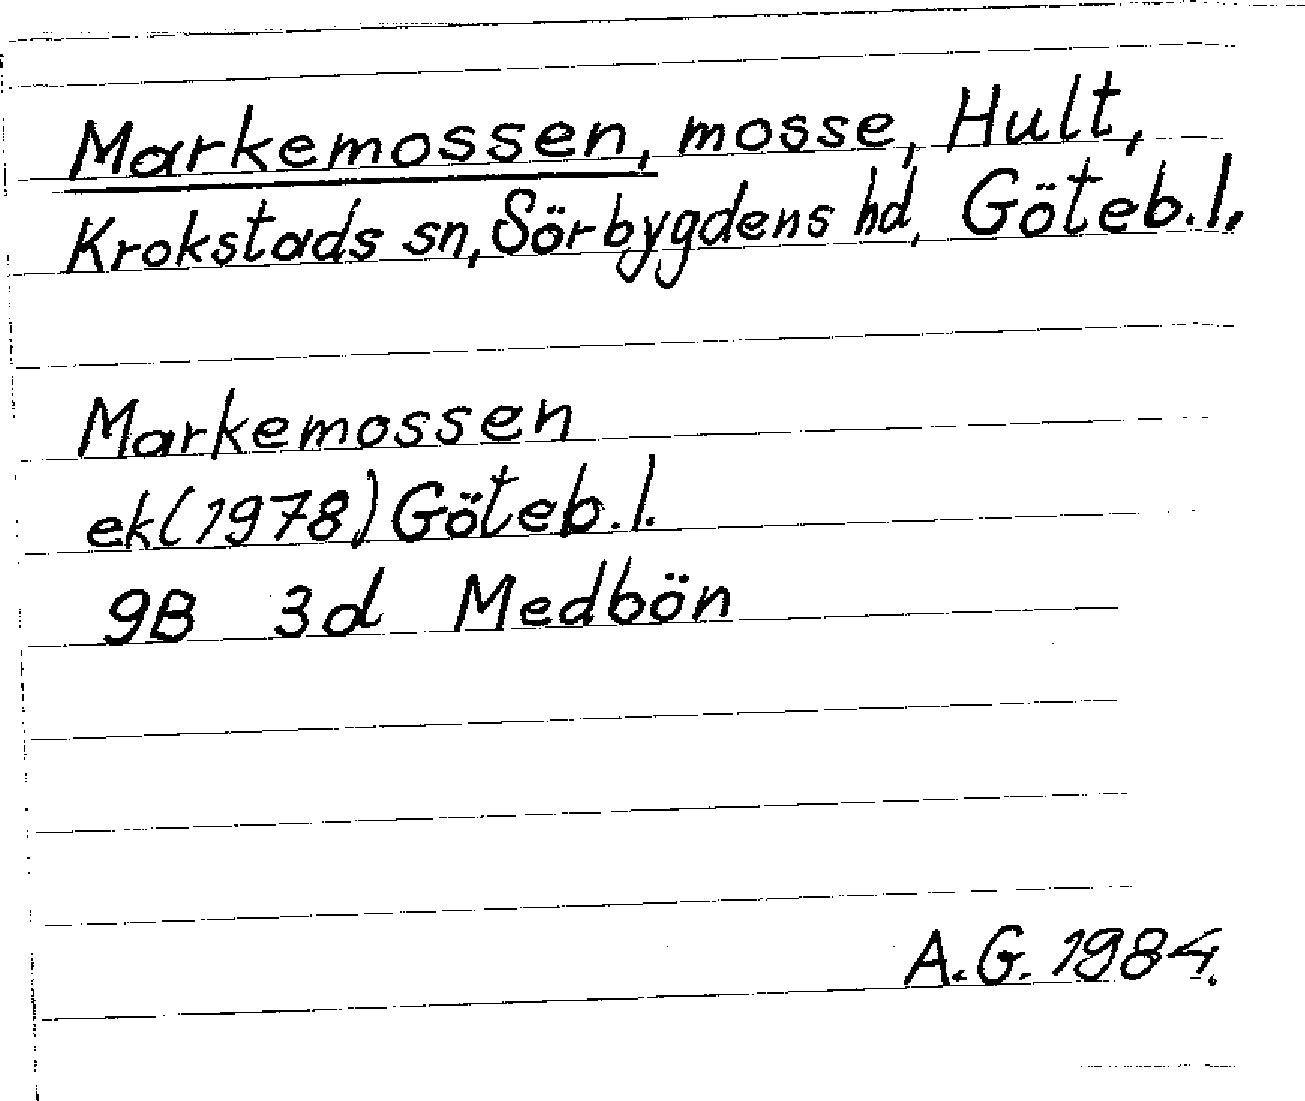 Markemossen, mosse, Hult,
Krokstads sn, Sörbygdens hd, Göteb. l.
Markemossen
ek (1978) Göteb. l.
9B 3d Medbön
A.G. 1984.